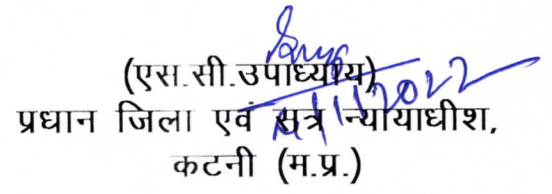 (एस.सी.उपाध्याय)
प्रधान जिला एवं सत्र न्यायाधीश,
कटनी (म.प्र.)